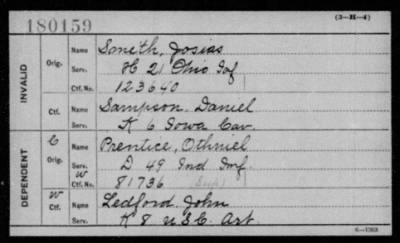 180159
(3-H-4)
INVALID
Orig.
Name Smeth, Josias
Serv. H 21 Ohio Inf
Ctf. No. 123640
Ctf.
Name Sampson, Daniel
Serv. K 6 Iowa Cav.
DEPENDENT
C
Orig.
Name Prentice, Othniel
Serv. D 49 Ind Inf.
W
Ctf. No. 81736
W
Ctf.
Name Ledford, John
Serv. K 8 U.S.C. Art.